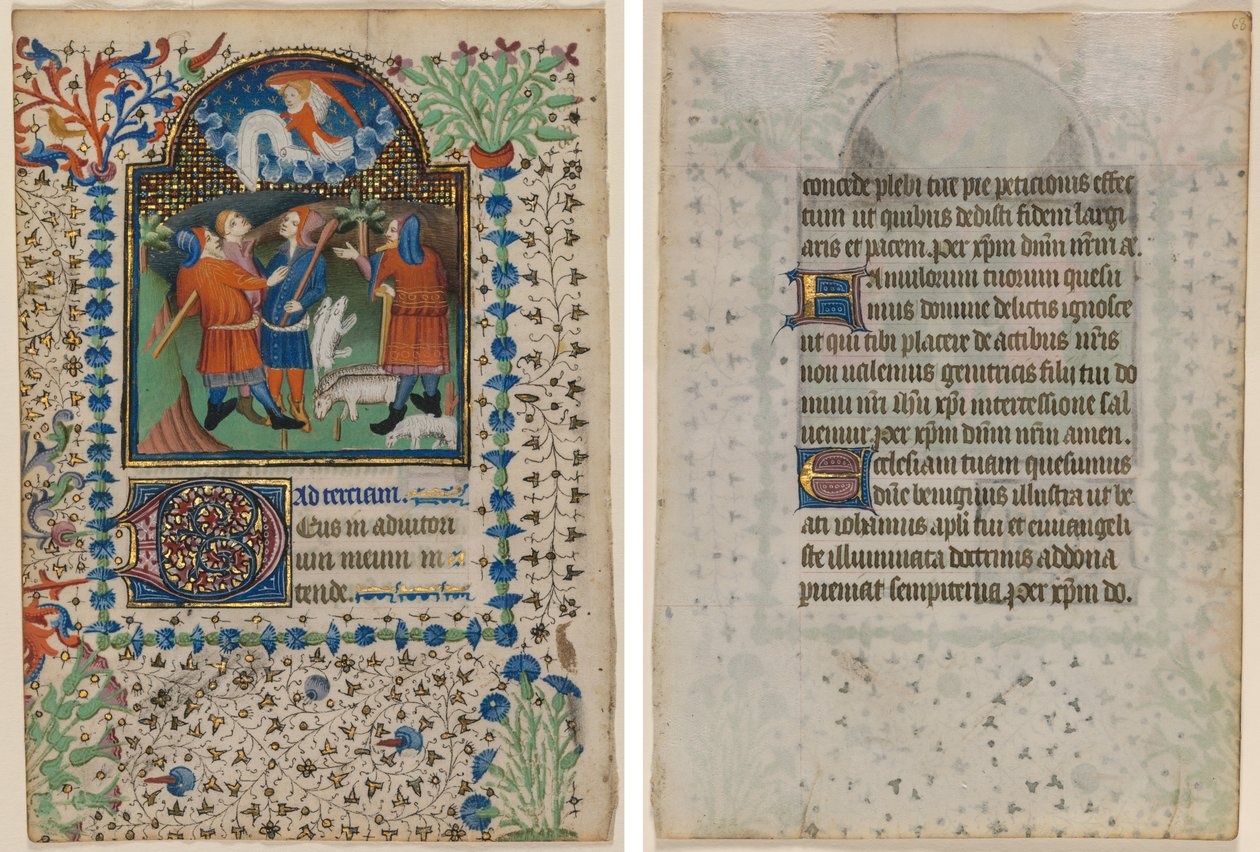 Ad terciam.
Deus in adiutori
um meum in
tende.
68
concede plebi tue pie peticionis effec
tum ut quibus dedisti fidem largi
aris et pacem. Per xpm dnm nrm ae.
Famulorum tuorum quesu
mus domine delictis ignosce
ut qui tibi placere de actibus nris
non ualemus genitricis filij tui do
mini nri ihu xpi intercessione sal
uemur. Per xpm dnm nrm amen.
Ecclesiam tuam quesumus
dne benignus illustra ut be
ati iohannis apli tui et euuangeli
ste illuminata doctrinis ad dona
perueniat sempiterna. Per xpm do.